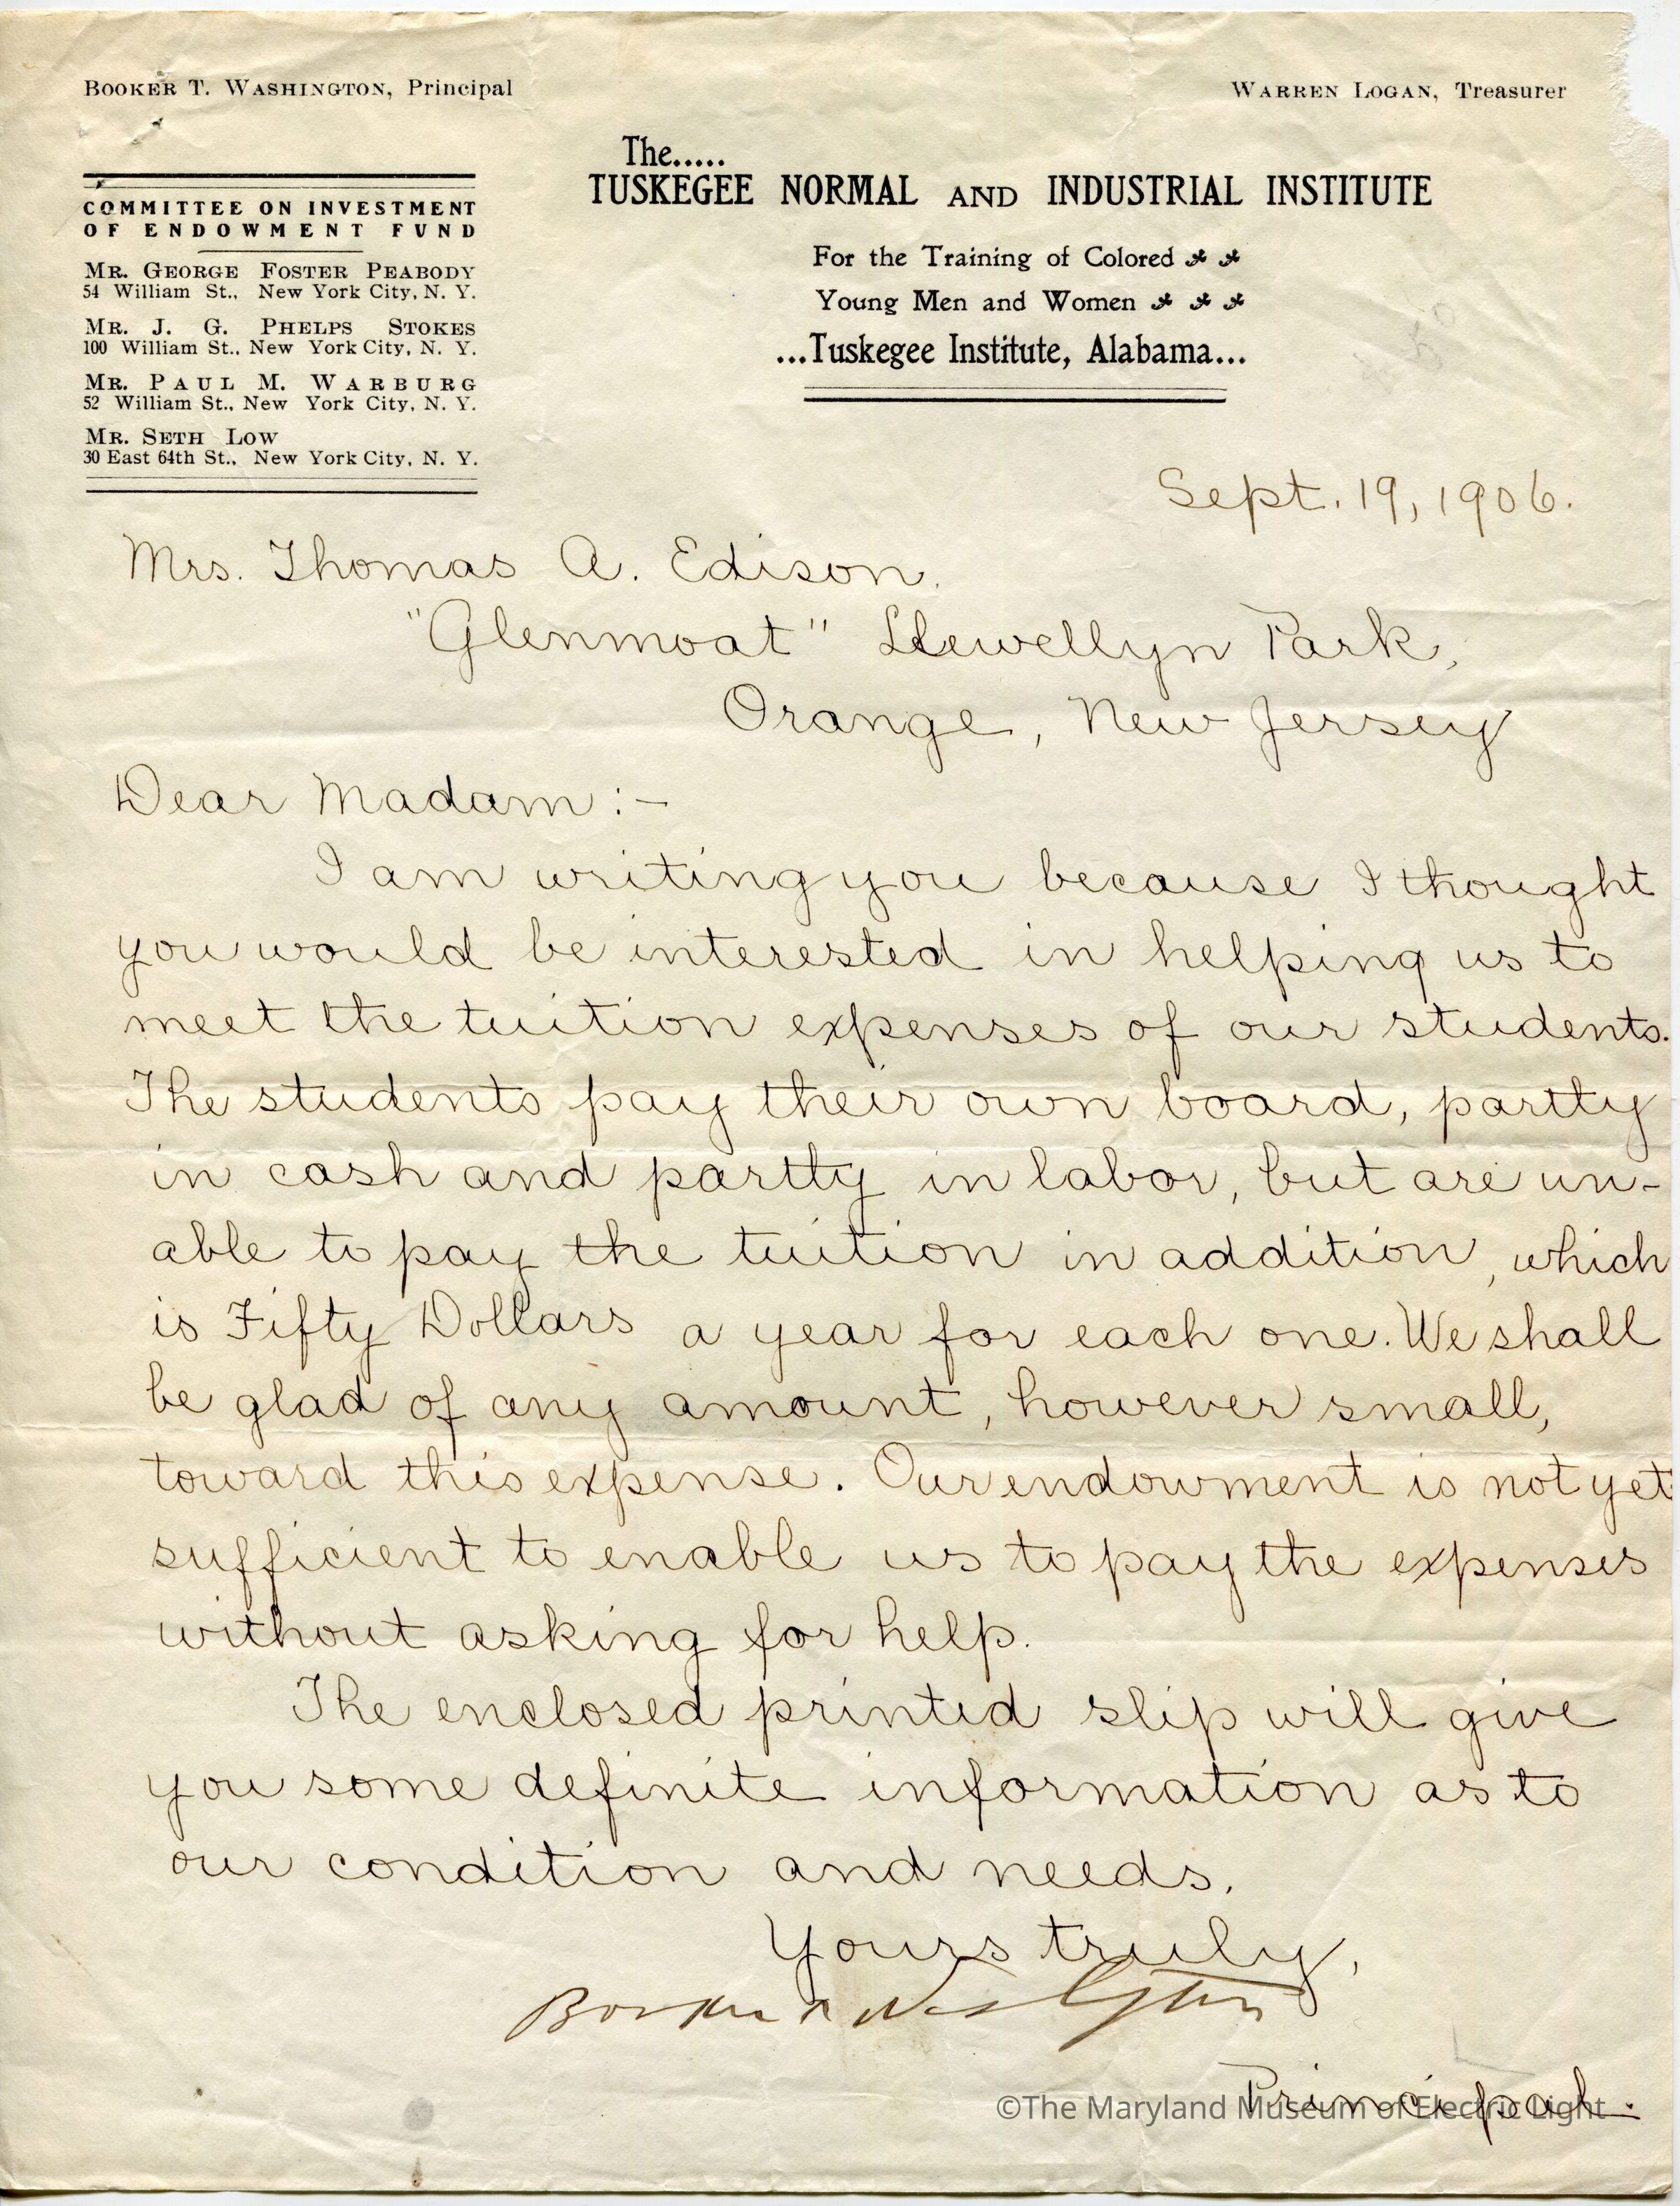 BOOKER T. WASHINGTON, Principal
WARREN LOGAN, Treasurer
The.....
TUSKEGEE NORMAL AND INDUSTRIAL INSTITUTE
For the Training of Colored
Young Men and Women
...Tuskegee Institute, Alabama...
COMMITTEE ON INVESTMENT
OF ENDOWMENT FUND
MR. GEORGE FOSTER PEABODY
54 William St., New York City, N. Y.
MR. J. G. PHELPS STOKES
100 William St., New York City, N. Y.
MR. PAUL M. WARBURG
52 William St., New York City, N. Y.
MR. SETH LOW
30 East 64th St., New York City, N. Y.
Sept. 19, 1906.
Mrs. Thomas A. Edison.
"Glenmoat" Llewellyn Park,
Orange, New Jersey
Dear Madam:-
I am writing you because I thought
you would be interested in helping us to
meet the tuition expenses of our students.
The students pay their own board, partly
in cash and partly in labor, but are un-
able to pay the tuition in addition, which
is Fifty Dollars a year for each one. We shall
be glad of any amount, however small,
toward this expense. Our endowment is not yet
sufficient to enable us to pay the expenses
without asking for help.
The enclosed printed slip will give
you some definite information as to
our condition and needs.
Yours truly,
Booker T. Washington
Principal.
©The Maryland Museum of Electric Light